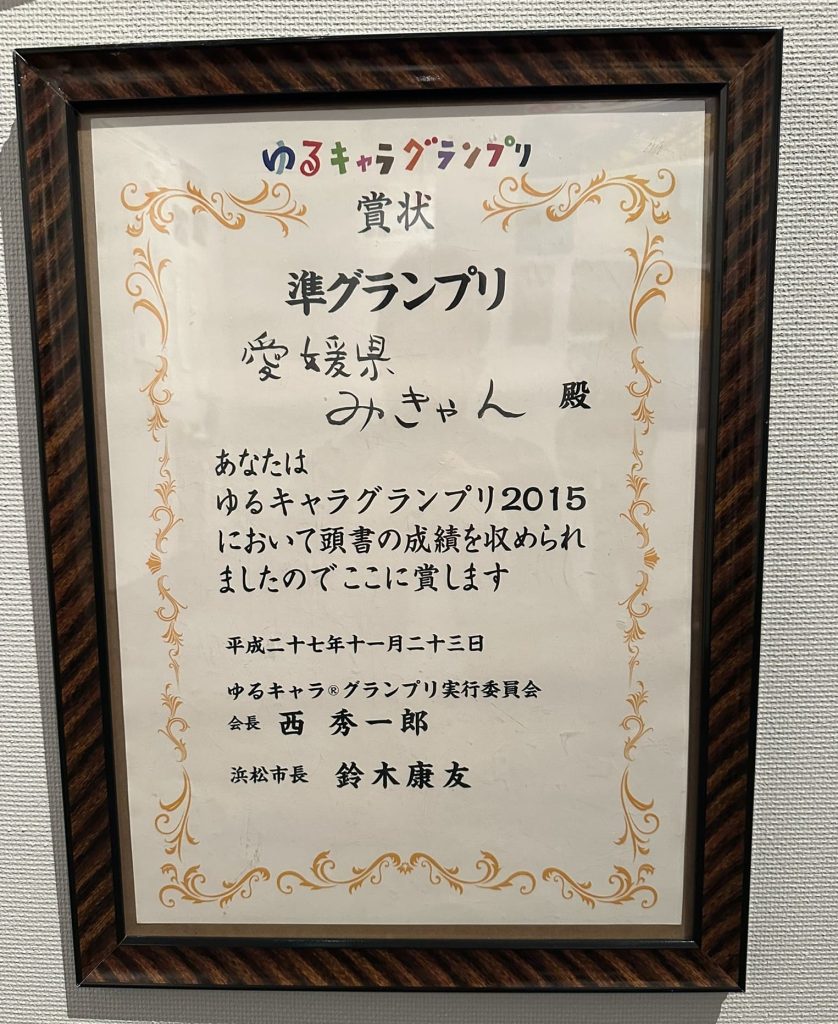 ゆるキャラグランプリ
賞状
準グランプリ
愛媛県
みきゃん 殿
あなたは
ゆるキャラグランプリ2015
において頭書の成績を収められ
ましたのでここに賞します
平成二十七年十一月二十三日
ゆるキャラ®グランプリ実行委員会
会長 西 秀一郎
浜松市長 鈴木康友